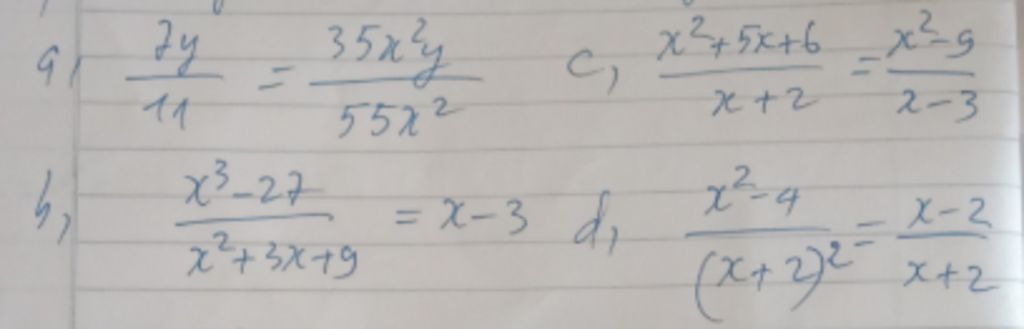 a, 7y/11 = 35x²y/55x² c, x²+5x+6/x+2 = x²-9/x-3
b, x³-27/x²+3x+9 = x-3 d, x²-4/(x+2)² = x-2/x+2